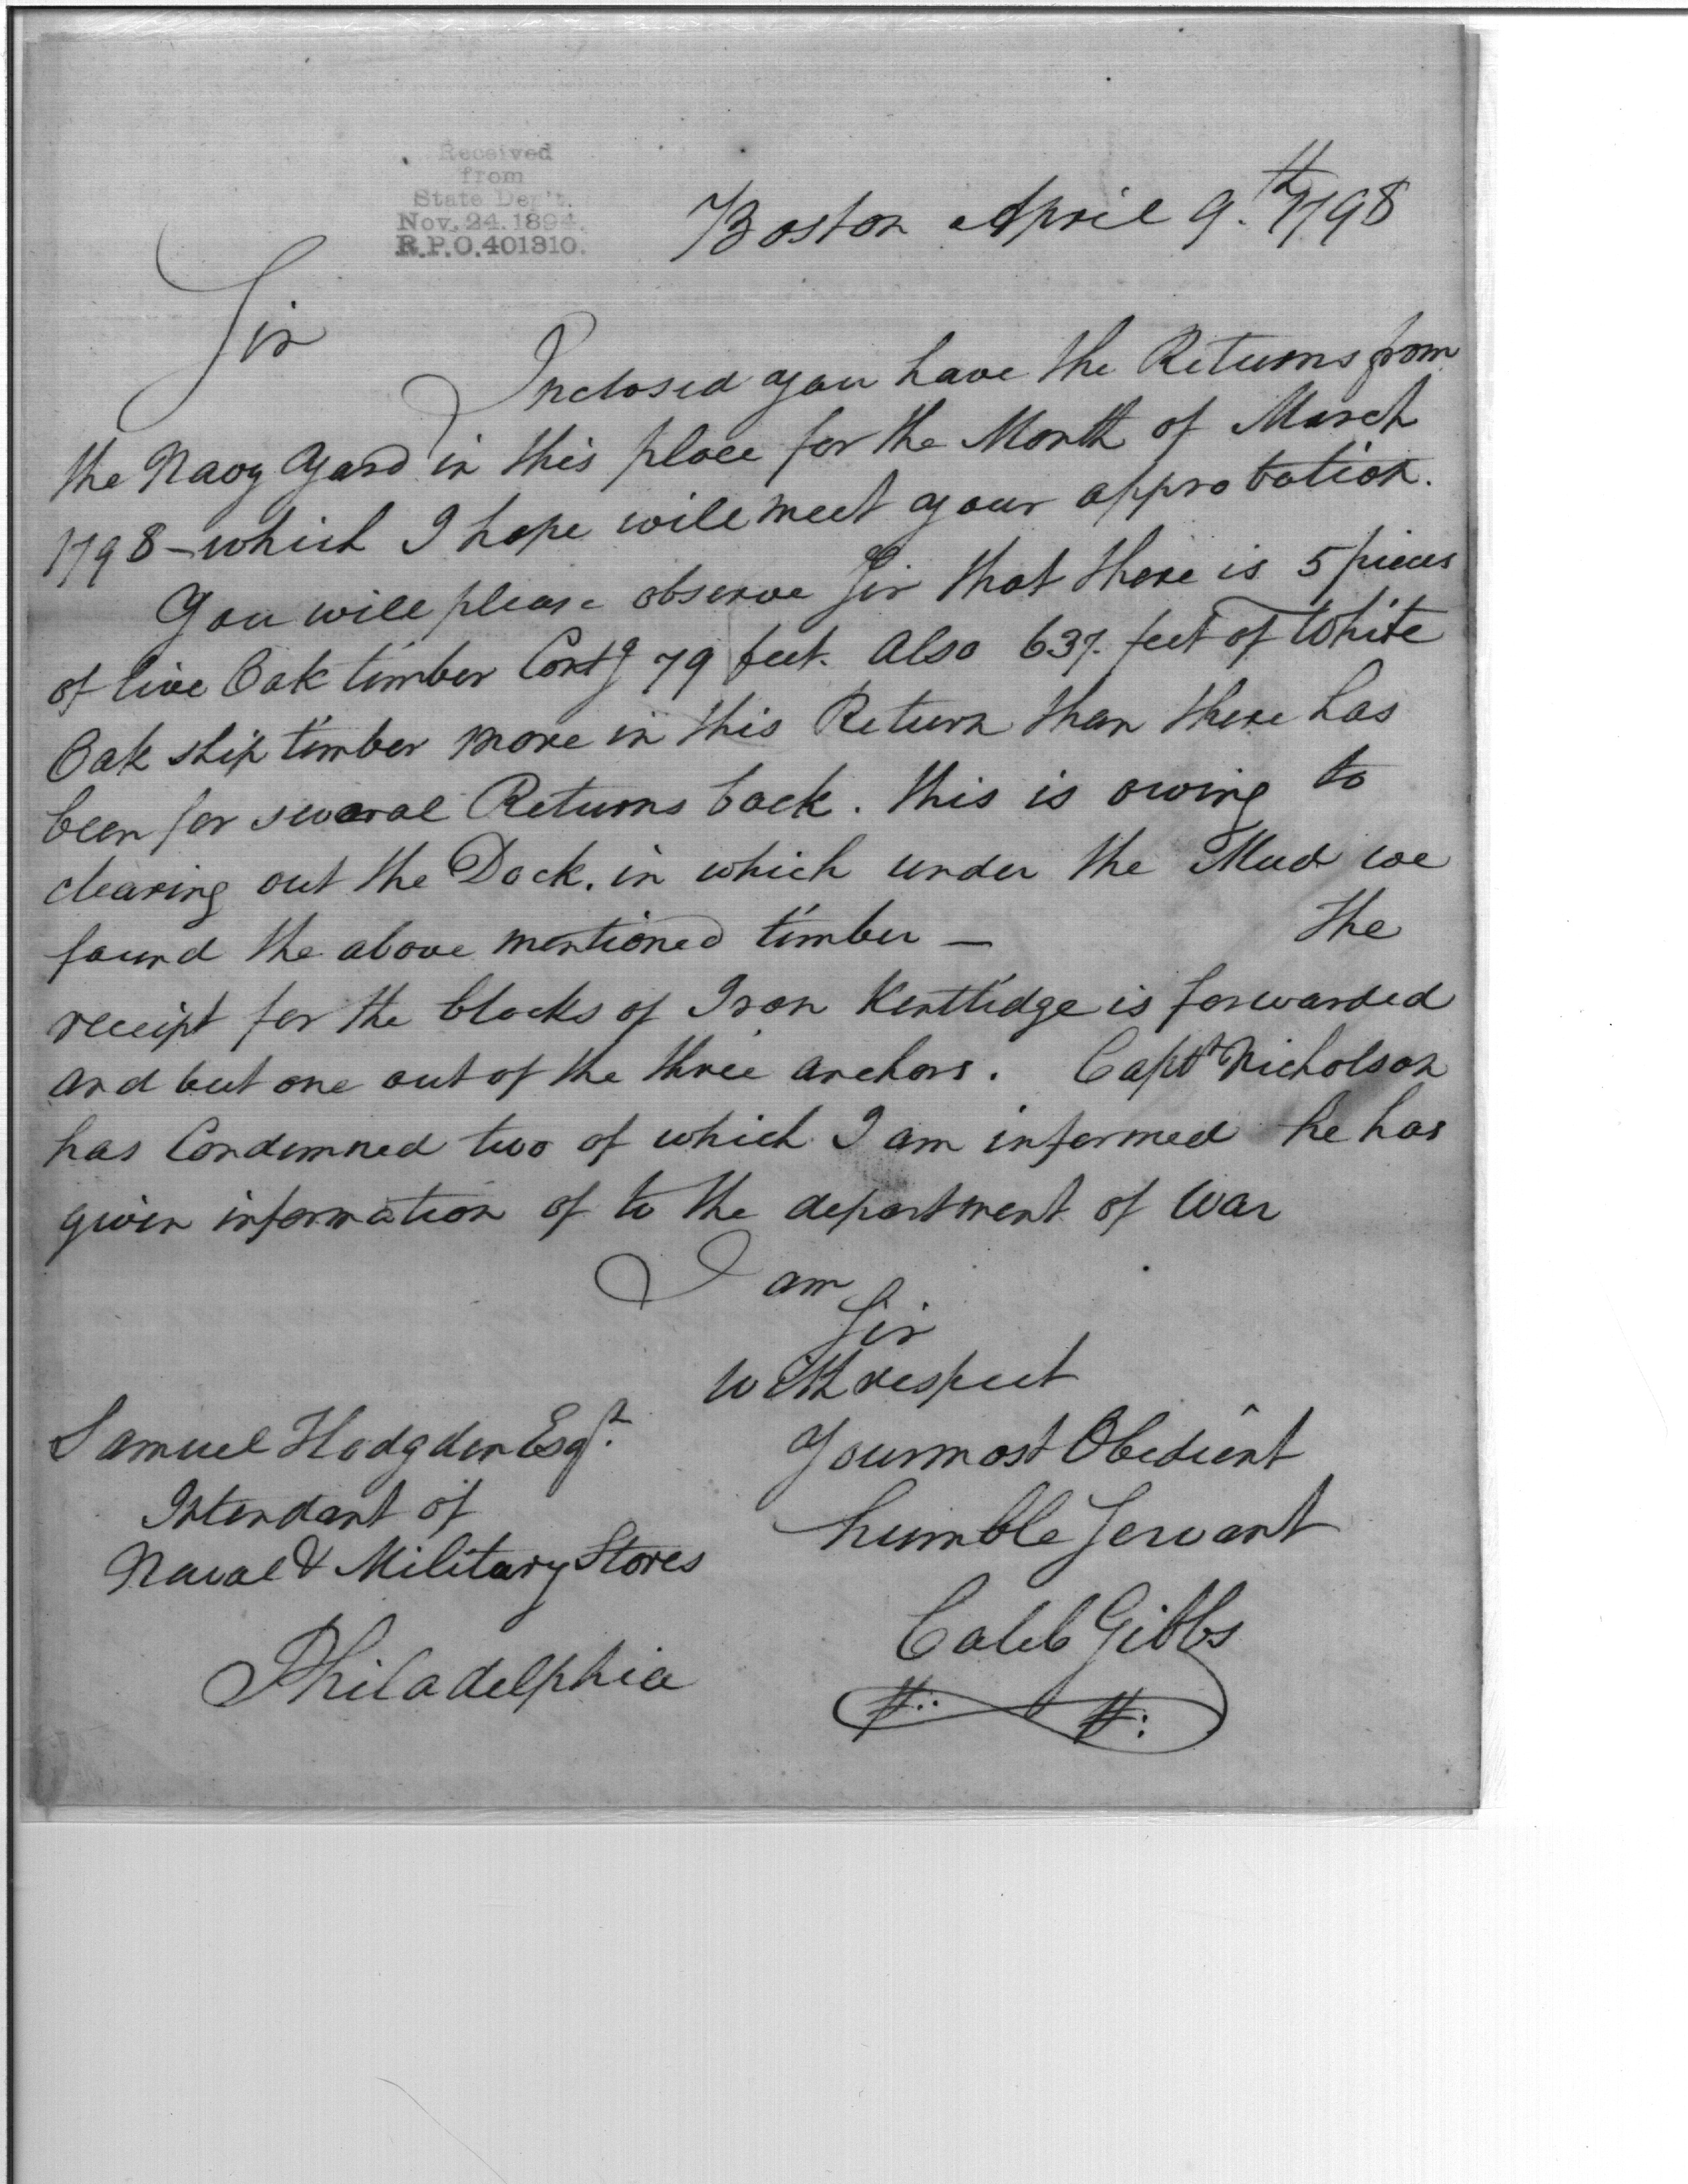 Received
from
State Dep't.
Nov. 24. 1894.
R.P.O. 401310.
Boston April 9.th 1798
Sir
Inclosed you have the Returns from
the Navy Yard in this place for the Month of March
1798 – which I hope will meet your approbation.
You will please observe Sir that there is 5 pieces
of live Oak timber Contg 79 feet. Also 637. feet of White
Oak ship timber more in this Return than there has
been for several Returns back. this is owing to
clearing out the Dock. in which under the Mud we
found the above mentioned timber — the
receipt for the blocks of Iron Kentlidge is forwarded
and but one out of the three anchors. Capt Nicholson
has Condemned two of which I am informed he has
given information of to the department of War
I am
Sir
with respect
Your most Obedient
humble Servant
Caleb Gibbs
Samuel Hodgdon Esqr.
Intendant of
Naval & Military Stores
Philadelphia